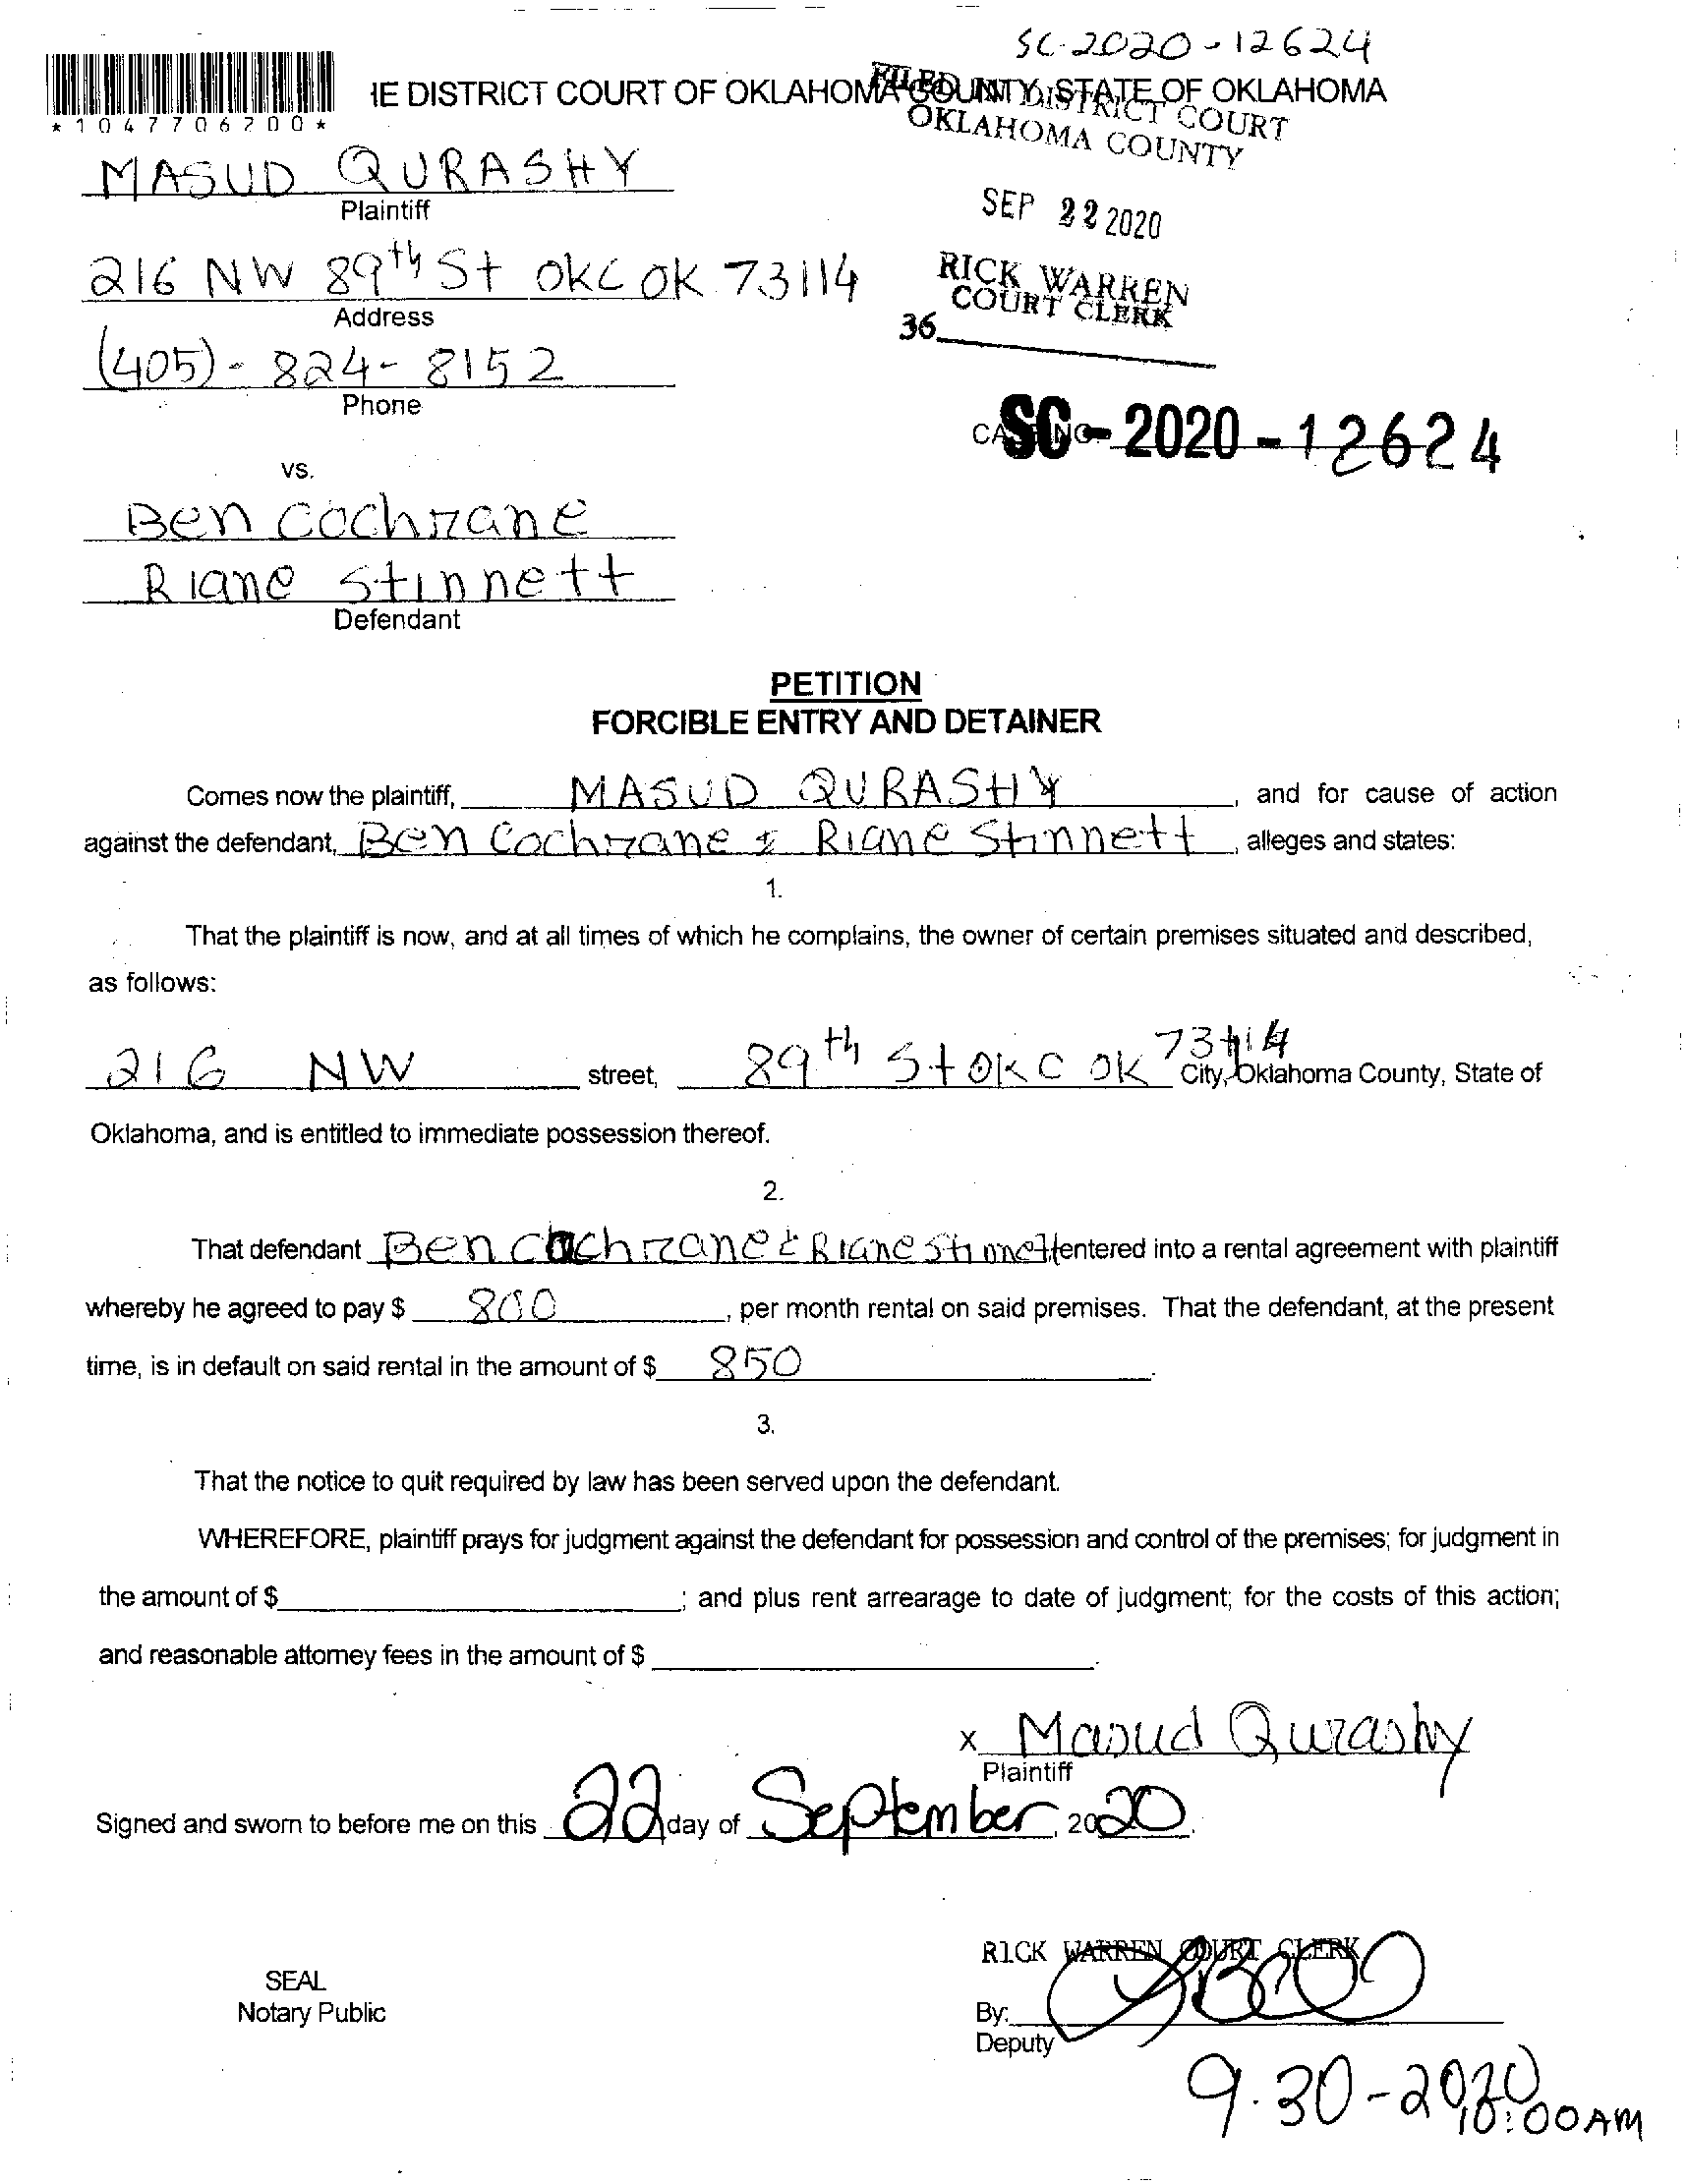 SC-2020-12624
IE DISTRICT COURT OF OKLAHOMA COUNTY, STATE OF OKLAHOMA
*1047706200*
FILED IN DISTRICT COURT
OKLAHOMA COUNTY
MASUD QURASHY
Plaintiff
SEP 22 2020
216 NW 89th St OKC OK 73114
Address
RICK WARREN
COURT CLERK
36
(405)-824-8152
Phone
SC-2020-12624
vs.
Ben Cochrane
Riane Stinnett
Defendant
PETITION
FORCIBLE ENTRY AND DETAINER
Comes now the plaintiff, MASUD QURASHY, and for cause of action
against the defendant, Ben Cochrane & Riane Stinnett, alleges and states:
1.
That the plaintiff is now, and at all times of which he complains, the owner of certain premises situated and described,
as follows:
216 NW street, 89th St OKC OK 73114 City, Oklahoma County, State of
Oklahoma, and is entitled to immediate possession thereof.
2.
That defendant Ben Cochrane & Riane Stinnett entered into a rental agreement with plaintiff
whereby he agreed to pay $ 800, per month rental on said premises. That the defendant, at the present
time, is in default on said rental in the amount of $ 850.
3.
That the notice to quit required by law has been served upon the defendant.
WHEREFORE, plaintiff prays for judgment against the defendant for possession and control of the premises; for judgment in
the amount of $; and plus rent arrearage to date of judgment; for the costs of this action;
and reasonable attorney fees in the amount of $.
x Masud Qurashy
Plaintiff
Signed and sworn to before me on this 22 day of September, 2020.
RICK WARREN COURT CLERK
SEAL
Notary Public
By:
Deputy
9-30-2020
10:00AM